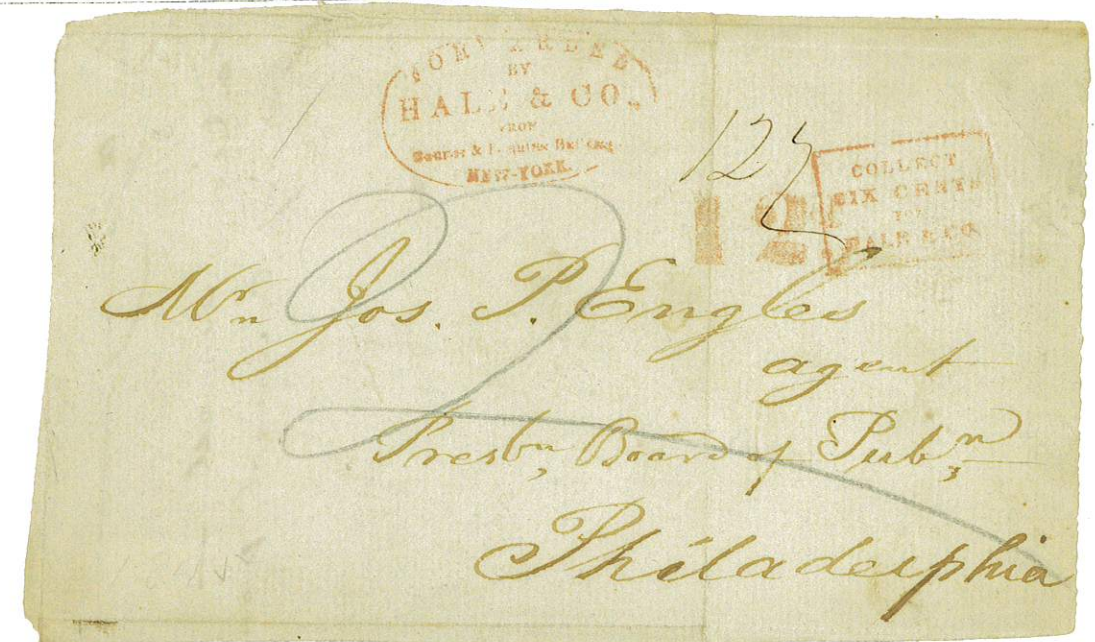 FORWARDED
BY
HALE & CO.
FROM
Courier & Enquirer
NEW-YORK.
12½
12½
COLLECT
SIX CENTS
FOR
HALE & CO.
2
Mr. Jos. P. Engles
agent
Presbn, Board of Pubn,
Philadelphia